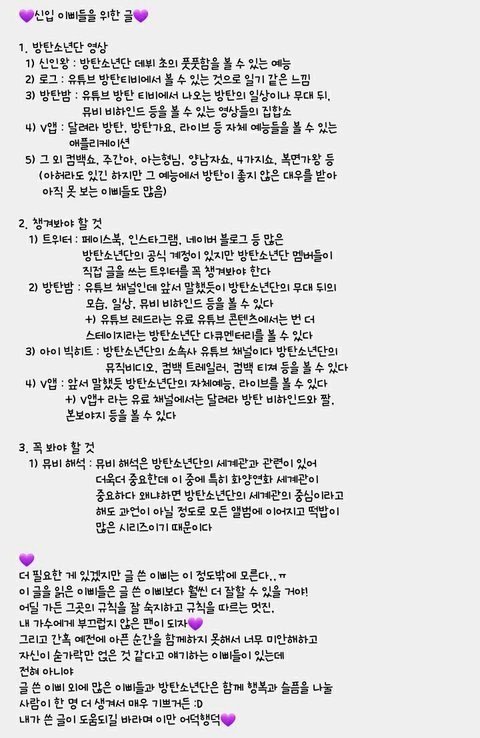 💜신입 이삐들을 위한 글💜
1. 방탄소년단 영상
1) 신인왕 : 방탄소년단 데뷔 초의 풋풋함을 볼 수 있는 예능
2) 로그 : 유튜브 방탄티비에서 볼 수 있는 것으로 일기 같은 느낌
3) 방탄밤 : 유튜브 방탄 티비에서 나오는 방탄의 일상이나 무대 뒤,
뮤비 비하인드 등을 볼 수 있는 영상들의 집합소
4) V앱 : 달려라 방탄, 방탄가요, 라이브 등 자체 예능들을 볼 수 있는
애플리케이션
5) 그 외 컴백쇼, 주간아, 아는형님, 양남자쇼, 4가지쇼, 복면가왕 등
(아허라도 있긴 하지만 그 예능에서 방탄이 좋지 않은 대우를 받아
아직 못 보는 이삐들도 많음)
2. 챙겨봐야 할 것
1) 트위터 : 페이스북, 인스타그램, 네이버 블로그 등 많은
방탄소년단의 공식 계정이 있지만 방탄소년단 멤버들이
직접 글을 쓰는 트위터를 꼭 챙겨봐야 한다
2) 방탄밤 : 유튜브 채널인데 앞서 말했듯이 방탄소년단의 무대 뒤의
모습, 일상, 뮤비 비하인드 등을 볼 수 있다
+) 유튜브 레드라는 유료 유튜브 콘텐츠에서는 번 더
스테이지라는 방탄소년단 다큐멘터리를 볼 수 있다
3) 아이 빅히트 : 방탄소년단의 소속사 유튜브 채널이다 방탄소년단의
뮤직비디오, 컴백 트레일러, 컴백 티저 등을 볼 수 있다
4) V앱 : 앞서 말했듯 방탄소년단의 자체예능, 라이브를 볼 수 있다
+) V앱+ 라는 유료 채널에서는 달려라 방탄 비하인드와 짤,
본보야지 등을 볼 수 있다
3. 꼭 봐야 할 것
1) 뮤비 해석 : 뮤비 해석은 방탄소년단의 세계관과 관련이 있어
더욱더 중요한데 이 중에 특히 화양연화 세계관이
중요하다 왜냐하면 방탄소년단의 세계관의 중심이라고
해도 과언이 아닐 정도로 모든 앨범에 이어지고 떡밥이
많은 시리즈이기 때문이다
💜
더 필요한 게 있겠지만 글 쓴 이삐는 이 정도밖에 모른다..ㅠ
이 글을 읽은 이삐들은 글 쓴 이삐보다 훨씬 더 잘할 수 있을 거야!
어딜 가든 그곳의 규칙을 잘 숙지하고 규칙을 따르는 멋진,
내 가수에게 부끄럽지 않은 팬이 되자💜
그리고 간혹 예전에 아픈 순간을 함께하지 못해서 너무 미안해하고
자신이 숟가락만 얹은 것 같다고 얘기하는 이삐들이 있는데
전혀 아니야
글 쓴 이삐 외에 많은 이삐들과 방탄소년단은 함께 행복과 슬픔을 나눌
사람이 한 명 더 생겨서 매우 기쁘거든 :D
내가 쓴 글이 도움되길 바라며 이만 어덕행덕💜